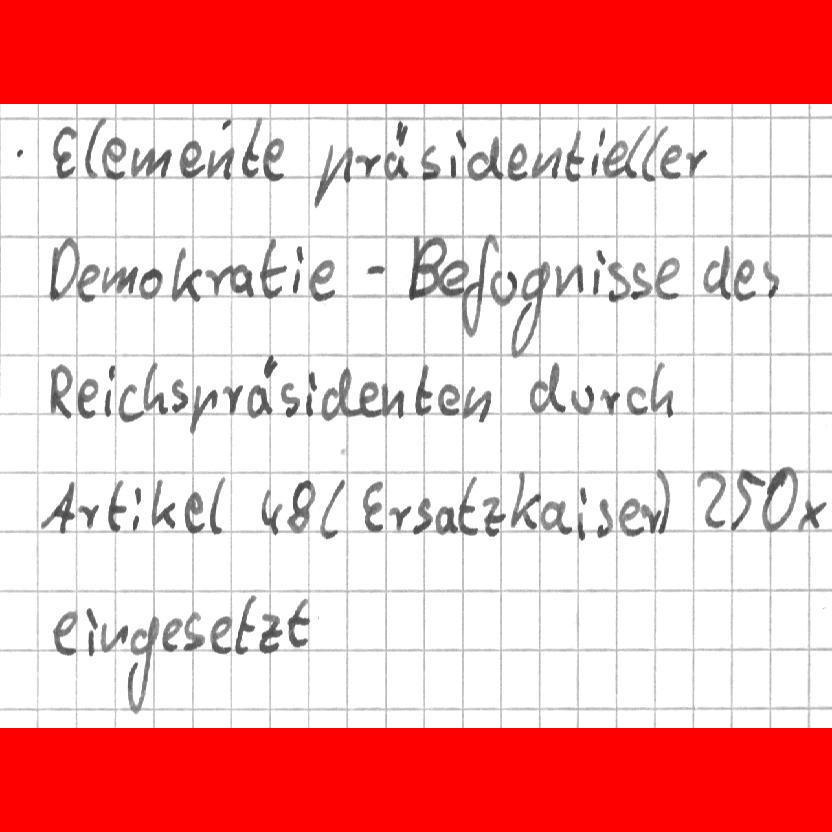 · Elemente präsidentieller
Demokratie - Befugnisse des
Reichspräsidenten durch
Artikel 48 (Ersatzkaiser) 250x
eingesetzt